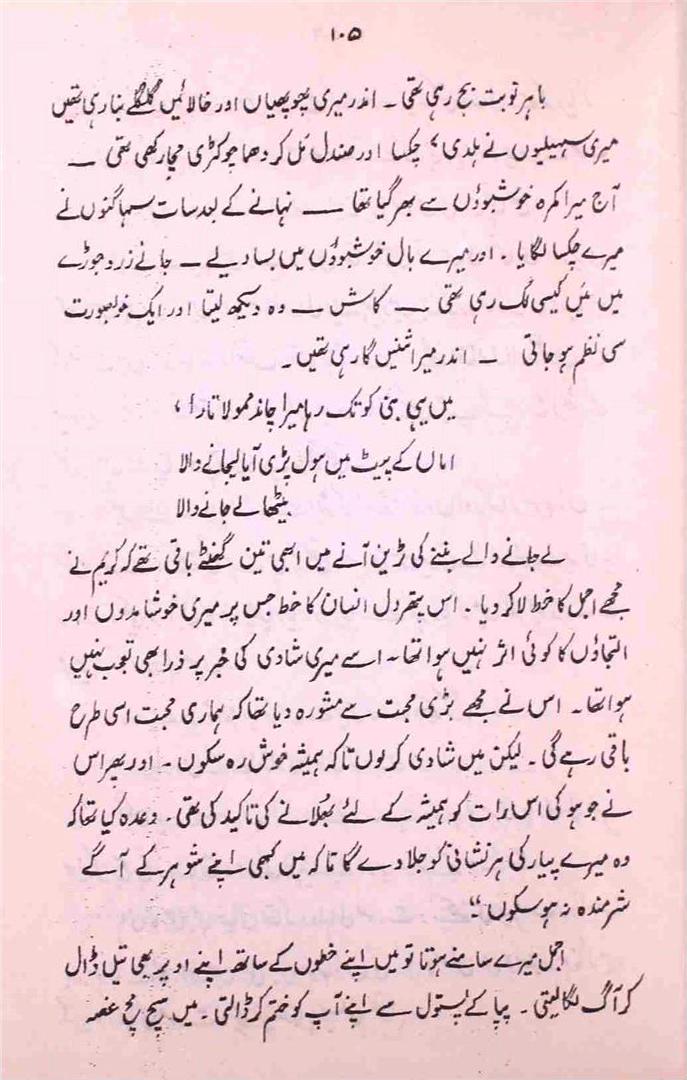 ۱۰۵
باہر نوبت بج رہی تھی ۔ اندر میری پھوپھیاں اور خالائیں گلگلے بنا رہی تھیں
میری سہیلیوں نے ہلدی ، چکسا اور صندل مَل کر دھما چوکڑی مچا رکھی تھی ۔
آج میرا کمرہ خوشبوؤں سے بھر گیا تھا ۔ نہانے کے بعد سات سہاگنوں نے
میرے چکسا لگایا ۔ اور میرے بال خوشبوؤں میں بسا دیے ۔ جانے زرد جوڑے
میں مَیں کیسی لگ رہی تھی ۔ کاش ۔ وہ دیکھ لیتا اور ایک خوبصورت
سی نظم ہو جاتی ۔ اندر میراثنیں گا رہی تھیں ۔
میں یہی بنی کو تک رہا میرا چاند ممولا تارا ،
اماں کے پیٹ میں ہول پڑی آیا لیجانے والا
بیٹھا لے جانے والا
لے جانے والے بنے کی ٹرین آنے میں ابھی تین گھنٹے باقی تھے کہ کریم نے
مجھے اجمل کا خط لا کر دیا ۔ اس پتھر دل انسان کا خط جس پر میری خوشامدوں اور
التجاؤں کا کوئی اثر نہیں ہوا تھا ۔ اسے میری شادی کی خبر پر ذرا بھی تعجب نہیں
ہوا تھا ۔ اس نے مجھے بڑی محبت سے مشورہ دیا تھا کہ ہماری محبت اسی طرح
باقی رہے گی ۔ لیکن میں شادی کر لوں تاکہ ہمیشہ خوش رہ سکوں ۔ اور پھر اس
نے جوہو کی اس رات کو ہمیشہ کے لئے بھُلانے کی تاکید کی تھی ۔ وعدہ کیا تھا کہ
وہ میرے پیار کی ہر نشانی کو جلا دے گا تاکہ میں کبھی اپنے شوہر کے آگے
شرمندہ نہ ہو سکوں ۔"
اجمل میرے سامنے ہوتا تو میں اپنے خطوں کے ساتھ اپنے اوپر بھی تیل ڈال
کر آگ لگا لیتی ۔ پپا کے پستول سے اپنے آپ کو ختم کر ڈالتی ۔ میں سچ مچ غصہ